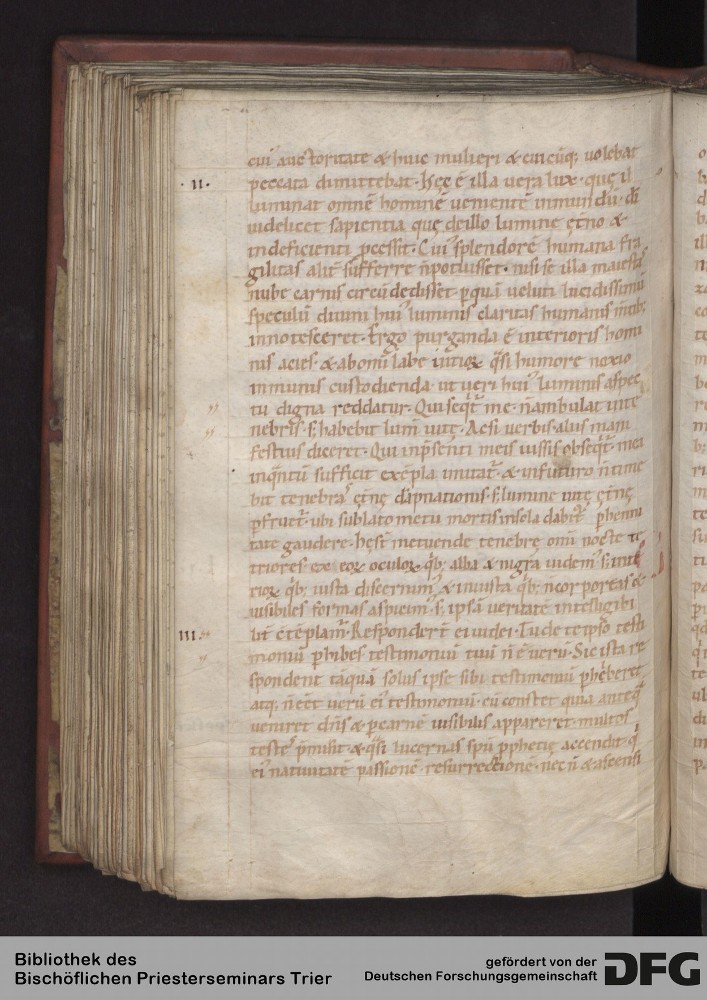 cui' auctoritate & huic mulieri & cuicūq; uolebat
·II·
peccata dimittebat. Hęc ē illa uera lux. quę il
luminat omnē hominē uenientē inmundū. dī
uidelicet sapientia quę deillo lumine ęt̄no &
indeficienti p̄cessit. Cui' splendorē humana fra
gilitas alit̄ sufferre n̄potuisset. nisi se illa maiestas
nube carnis circūdedisset. p quā ueluti lucidissimū
speculū diuini hui' luminis claritas humanis mtib;
innotesceret. Ergo purganda ē interioris homi
nis acies. & abomī labe iniqꝝ q̄si humore noxio
inmunis custodienda. ut ueri hui' luminis aspec
tu digna reddatur. Qui seqt̄ me. n̄ambulat inte
nebris. s; habebit lum̄ uitę. Ac si uerbis aliis mani
festius diceret. Qui inp̄senti meis iussis obseqt̄. mea
inqntū sufficit exēpla imitat̄. & infuturo n̄ time
bit tenebras ęt̄nę dāpnationis. s; lumine uitę ęt̄nę
p̄fruet̄. ubi sublato metu mortis insola dabit̄ phenni
tate gaudere. hęst̄ metuende tenebrę omī nocte te
triores. ex eoꝝ oculoꝝ q̄b; alba & nigra uidem'. s; inte
rioꝝ q̄b; iusta discernim' & iniusta. q̄b; n̄corporeas &
uisibiles formas aspicim'. s; ipsā ueritatē intelligibi
III.
lit̄ ctēplam̄. Respondert̄ ei iudei. Tu de te ipso testi
moniū phibes testimoniū tuū n̄ ē uerū. Sic ista re
spondent tāquā solus ipse sibi testimoniū phiberet
atq; n̄eēt uerū ei' testimoniū. cū constet quia anteq̄
ueniret dn̄s & p carnē uisibilis appareret. multos
testes p̄misit. & q̄si lucernas spū pphetię accendit. q̄
ei' natiuitatē passionē. resurrectionē. necn̄ & ascensi
Bibliothek des
Bischöflichen Priesterseminars Trier
gefördert von der
Deutschen Forschungsgemeinschaft
DFG